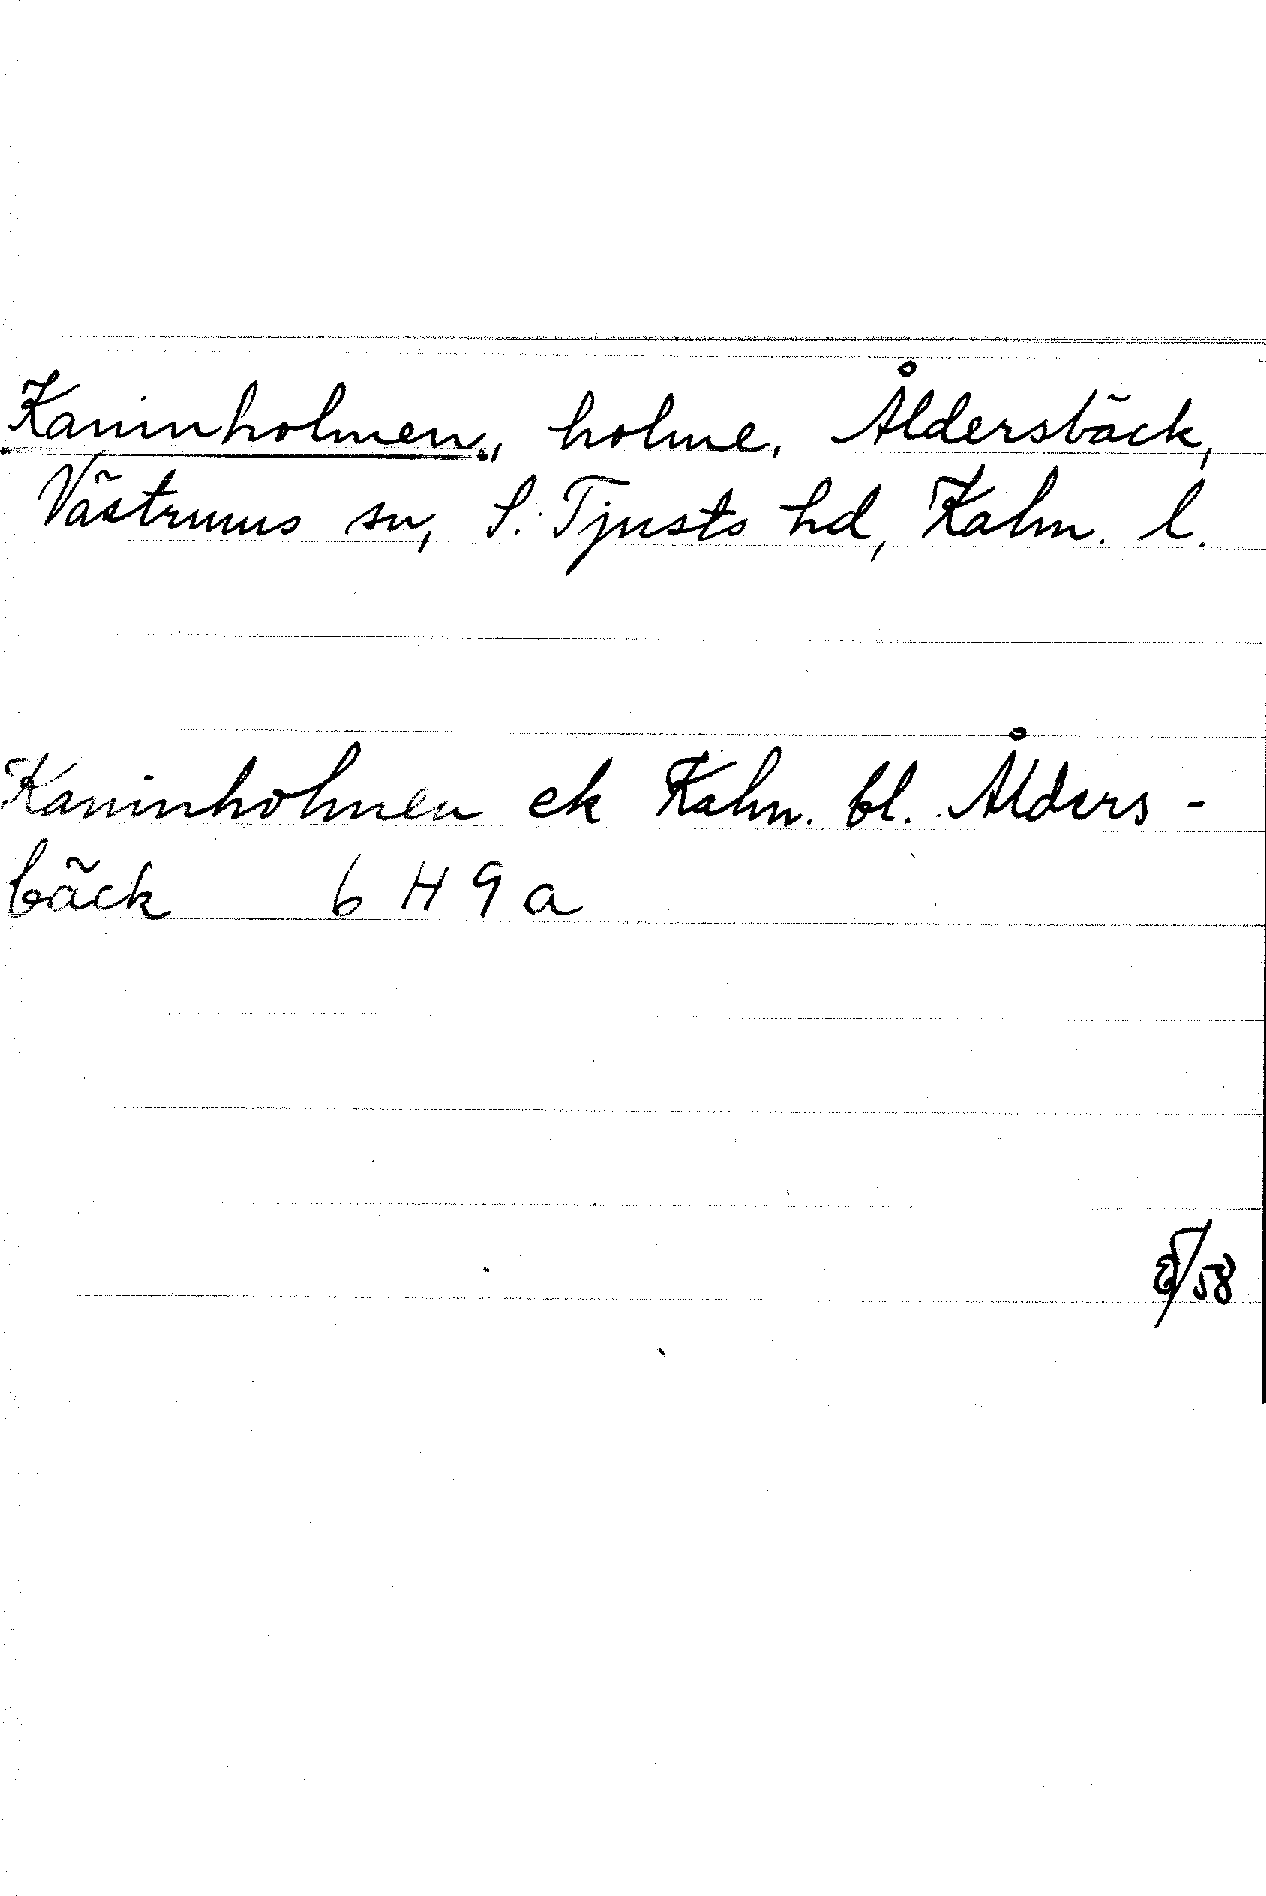 Kaninholmen, holme, Åldersbäck,
Västrums sn, S. Tjusts hd, Kalm. l.
Kaninholmen ek Kalm. bl. Ålders-
bäck 6 H 9 a
/58